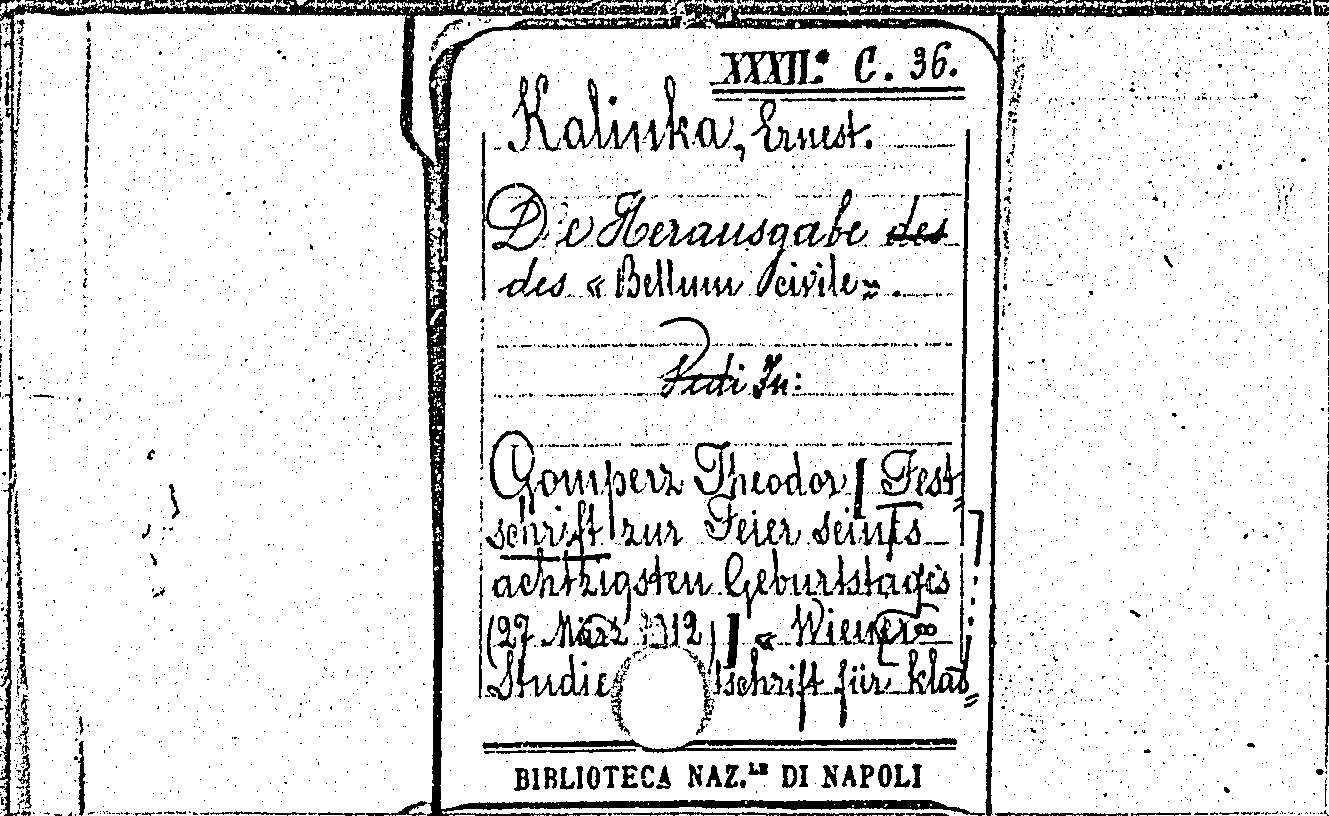 XXXII.° C. 36.
Kalinka, Ernest.
Die Herausgabe des
des « Bellum civile » .
Vedi In:
Gomperz Theodor [ Fest-
schrift zur Feier seines
achtzigsten Geburtstages
(27 März 1912) ] « Wiener
Studie tschrift für klas-
BIBLIOTECA NAZ.LE DI NAPOLI